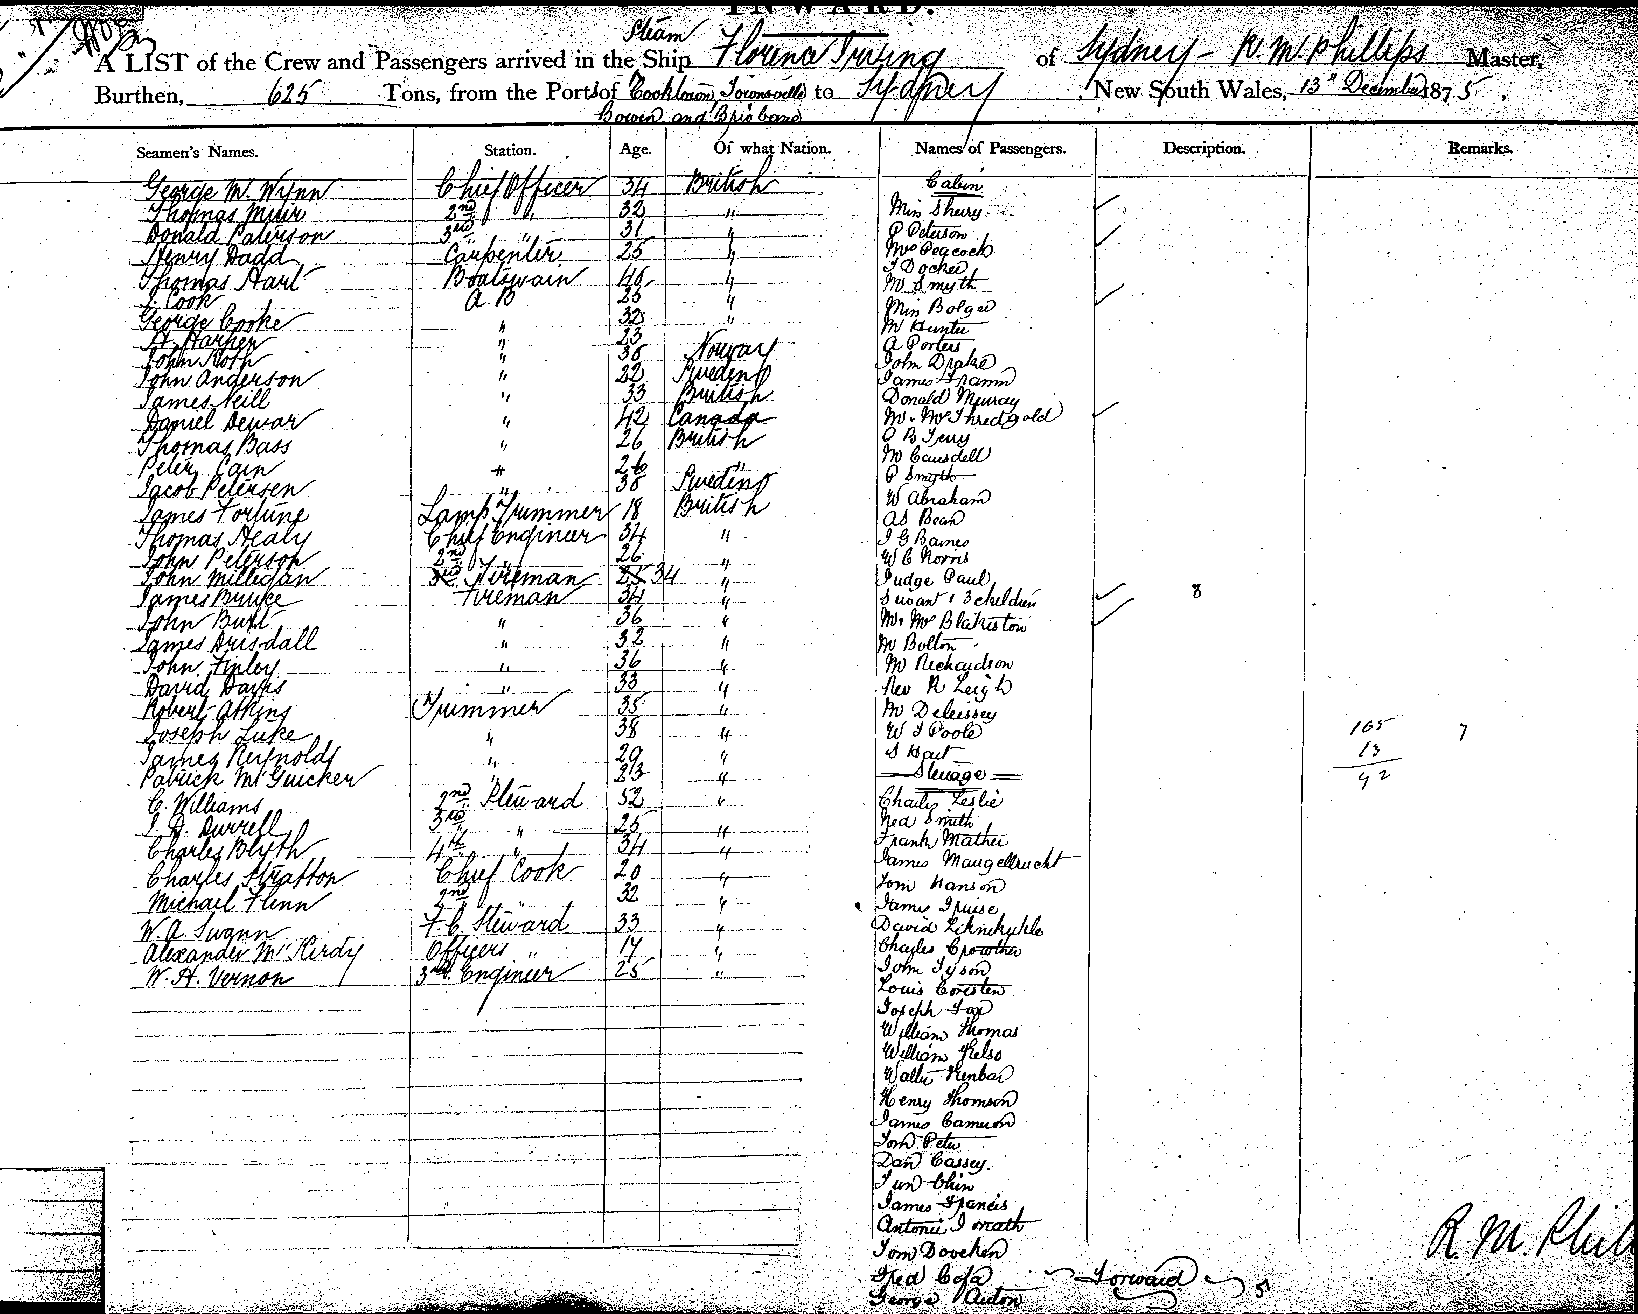 INWARD.
Steam
A LIST of the Crew and Passengers arrived in the Ship Florence Irving of Sydney - R. M. Phillips Master,
Burthen, 625 Tons, from the Ports of Cooktown Townsville to Sydney New South Wales, 13th December 1875.
Bowen and Brisbane
Seamen's Names. Station. Age. Of what Nation. Names of Passengers. Description. Remarks.
George M. Wynn Chief Officer 34 British
Thomas Muir 2nd " 32 "
Donald Paterson 3rd " 31 "
Henry Dadd Carpenter 25 "
Thomas Hart Boatswain 45 "
J. Cook A B 25 "
George Cooke " 32 "
H. Harper " 23
John Roth " 36 Norway
John Anderson " 22 Sweden
James Neill " 33 British
Daniel Dewar " 42 Canada
Thomas Bass " 26 British
Peter Cain " 26 "
Jacob Petersen " 38 Sweden
James Fortune Lamp Trimmer 18 British
Thomas Healy Chief Engineer 34 "
John Peterson 2nd " 26 "
John Milligan Fireman 34 "
James Bruce Fireman 34 "
John Buhl " 36 "
James Drisdall " 32 "
John Finley " 36 "
David Davis " 33 "
Robert Atkins Trimmer 35 "
Joseph Luke " 38 "
James Reynolds " 29 "
Patrick McGuicker " 23 "
C. Williams 2nd Steward 52 "
J. D. Durrell 3rd " 25 "
Charles Blyth 4th " 34 "
Charles Stratton Chief Cook 20 "
Michael Flinn 2nd " 32 "
W. A. Swann F. C. Steward 33 "
Alexander McKirdy Officers " 17 "
W. H. Vernon 3rd Engineer 25 "
Cabin
Miss Sheiry
P Peterson
Mrs Peacock
J Docker
Mr Smyth
Miss Bolger
Mr Hunter
A Porters
John Drake
James Framm
Donald Murray
Mr. Mrs Thredgold
P B Terry
Mr Causdell
P Smyth
W Abraham
AS Bean
J G Barnes
W C Norris
Judge Paul
Servant & 3 children 8
Mr. Mrs Blakiston
Mr Bolton
Mr Richardson
Rev R Leigh
Mr Deleissey
W J Poole
S Hart
Steerage
Charles Leslie
Ned Smith
Frank Mather
James Maugellrucht
Tom Hanson
James
David
Charles Crowther
John Tyson
Louis Coresten
Joseph Fox
William Thomas
William Kelso
Walter Kenbar
Henry Thomson
James Cameron
Tom Peter
Dan Cassey
Jun Chin
James Francis
Antonie
Tom Dovehen
Fred Cofa
George Anton
Forward 5
105 7
13
92
R M Phil